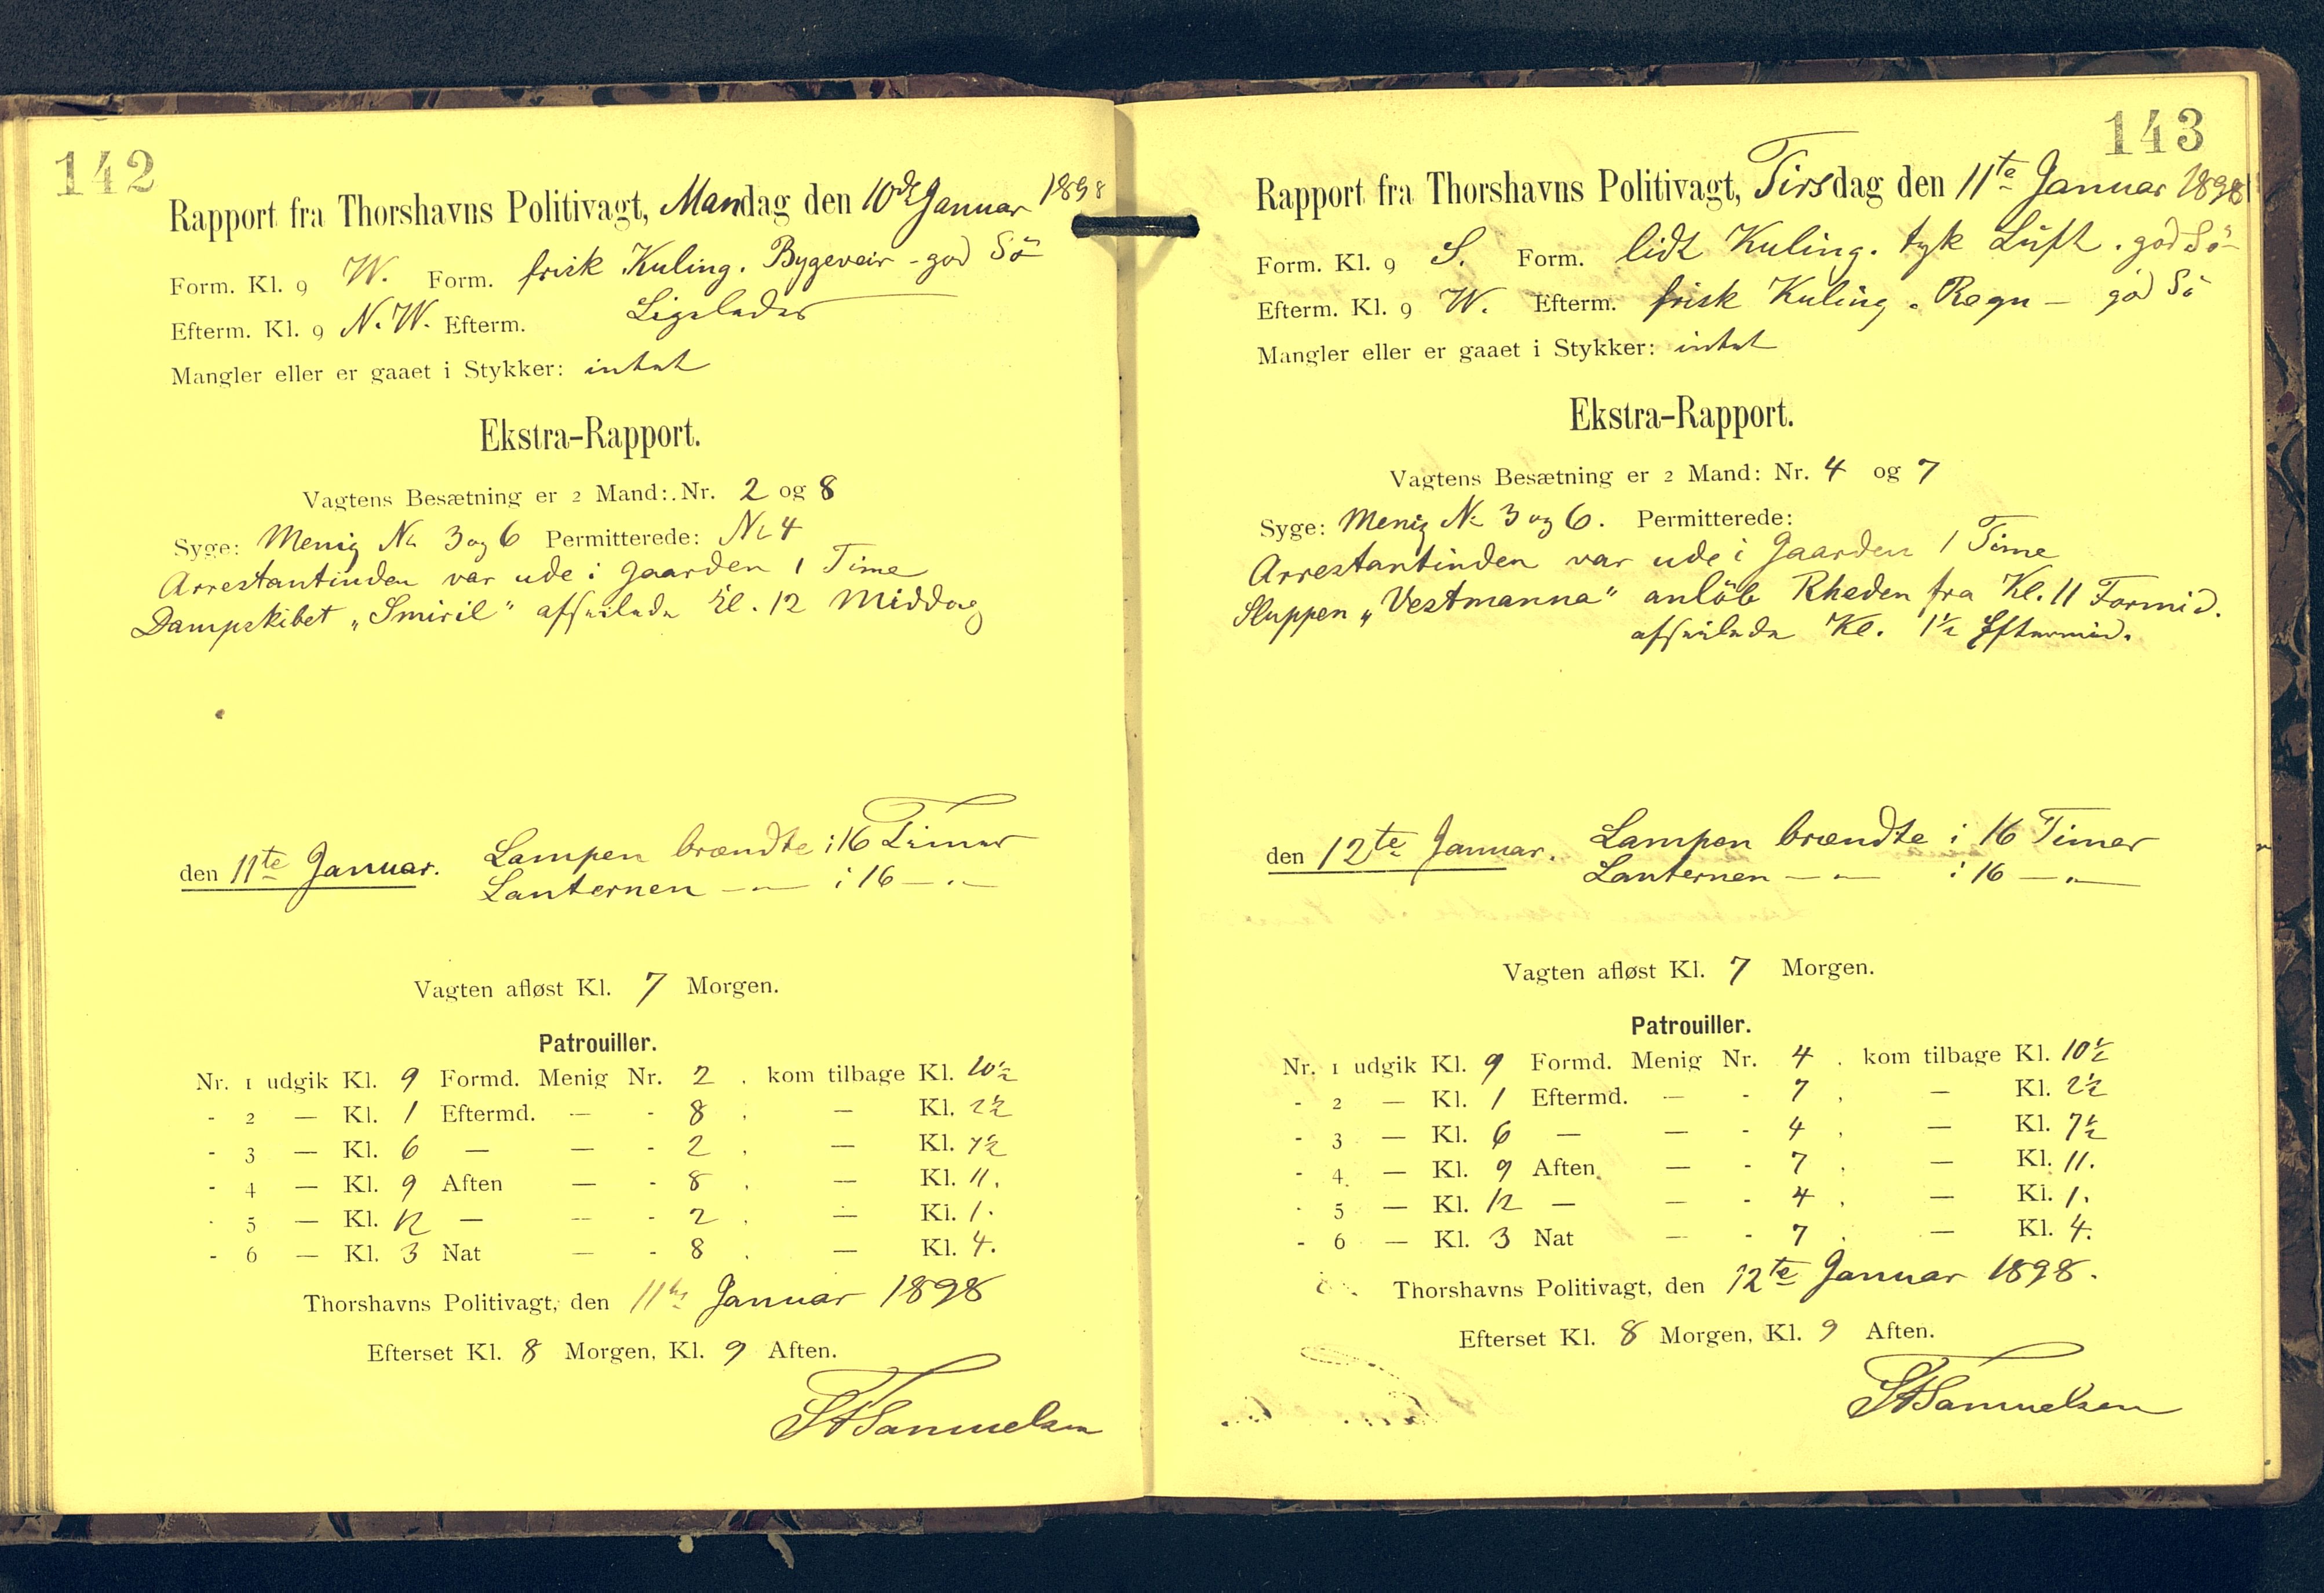 142
Rapport fra Thorshavns Politivagt, Mandag den 10de Januar 1898
Form. Kl. 9 W. Form. frisk Kuling. Bygeveir - god Sö
Efterm. Kl. 9 N.W. Efterm. Ligeledes
Mangler eller er gaaet i Stykker: intet
Ekstra-Rapport.
Vagtens Besætning er 2 Mand: Nr. 2 og 8
Syge: Menig No 3 og 6 Permitterede: No 4
Arrestantinden var ude i Gaarden 1 Time
Dampskibet „Smiril" afseilede Kl. 12 Middag
den 11te Januar. Lampen brændte i 16 Timer
Lanternen — " — i 16 — " —
Vagten afløst Kl. 7 Morgen.
Patrouiller.
Nr. 1 udgik Kl. 9 Formd. Menig Nr. 2 , kom tilbage Kl. 10½
- 2 — Kl. 1 Eftermd. — - 8 , — Kl. 2½
- 3 — Kl. 6 — — - 2 , — Kl. 7½
- 4 — Kl. 9 Aften — - 8 , — Kl. 11.
- 5 — Kl. 12 — — - 2 , — Kl. 1.
- 6 — Kl. 3 Nat — - 8 , — Kl. 4.
Thorshavns Politivagt, den 11te Januar 1898
Efterset Kl. 8 Morgen, Kl. 9 Aften.
Samuelsen
143
Rapport fra Thorshavns Politivagt, Tirsdag den 11te Januar 1898
Form. Kl. 9 S. Form. lidt Kuling. tyk Luft. god Sö
Efterm. Kl. 9 W. Efterm. frisk Kuling. Regn - god Sö
Mangler eller er gaaet i Stykker: intet
Ekstra-Rapport.
Vagtens Besætning er 2 Mand: Nr. 4 og 7
Syge: Menig No 3 og 6. Permitterede:
Arrestantinden var ude i Gaarden 1 Time
Sluppen „Vestmanna" anløb Rheden fra Kl. 11 Formid.
afseilede Kl. 1½ Eftermid.
den 12te Januar. Lampen brændte i 16 Timer
Lanternen — " — i 16 — " —
Vagten afløst Kl. 7 Morgen.
Patrouiller.
Nr. 1 udgik Kl. 9 Formd. Menig Nr. 4 , kom tilbage Kl. 10½
- 2 — Kl. 1 Eftermd. — - 7 , — Kl. 2½
- 3 — Kl. 6 — — - 4 , — Kl. 7½
- 4 — Kl. 9 Aften — - 7 , — Kl. 11.
- 5 — Kl. 12 — — - 4 , — Kl. 1.
- 6 — Kl. 3 Nat — - 7 , — Kl. 4.
Thorshavns Politivagt, den 12te Januar 1898.
Efterset Kl. 8 Morgen, Kl. 9 Aften.
Samuelsen